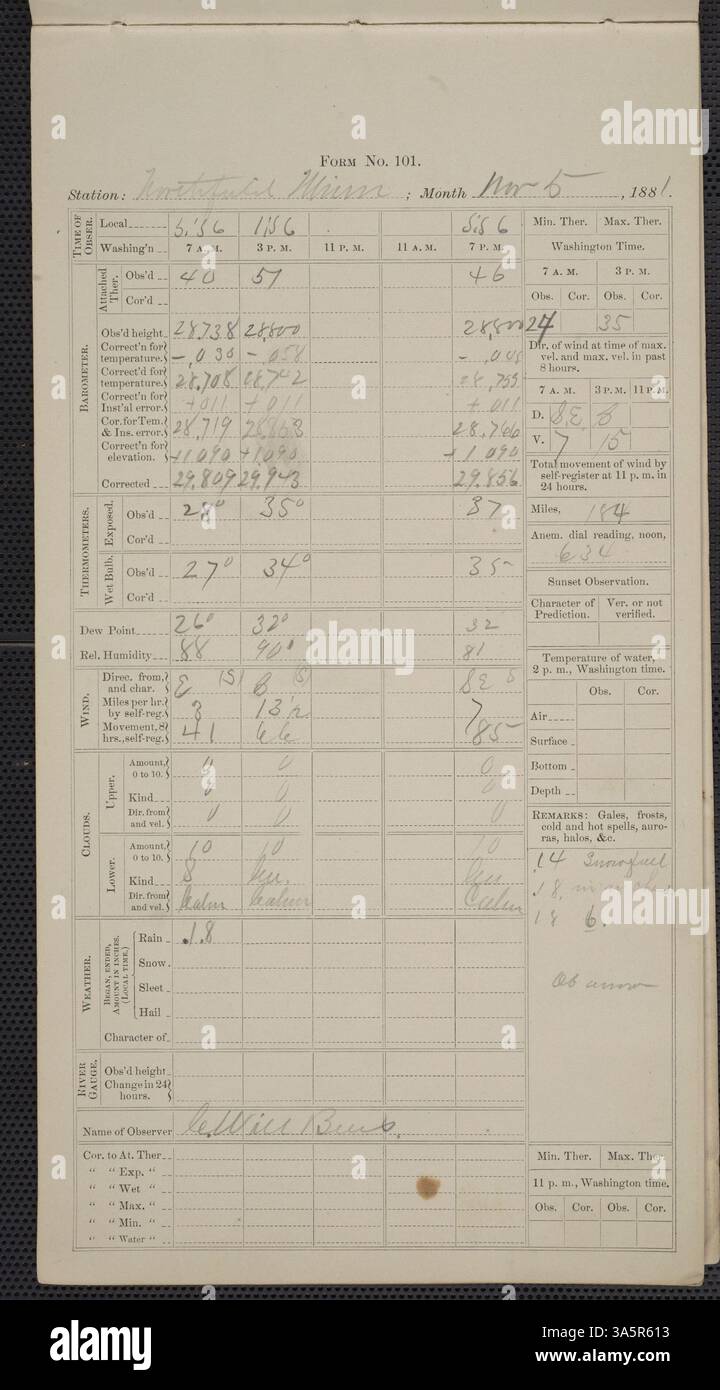 FORM NO. 101.
Station: Northfield Minn ; Month Nov 5 , 1881.
TIME OF OBSER.
Local 5.56 1.56 5.56
Washing'n 7 A. M. 3 P. M. 11 P. M. 11 A. M. 7 P. M.
BAROMETER.
Attached Ther.
Obs'd 40 51 46
Cor'd
Obs'd height 28.738 28,800 28,800
Correct'n for temperature. -.030 -.058
Correct'd for temperature. 28.708 28,742 28,755
Correct'n for Inst'al error. +011 +011 +.011
Cor. for Tem. & Ins. error. 28,719 28.853 28.766
Correct'n for elevation. +1.090 +1.090 +1.090
Corrected 29.809 29.943 29.856
THERMOMETERS.
Exposed.
Obs'd 28° 35° 37
Cor'd
Wet Bulb.
Obs'd 27° 34° 35
Cor'd
Dew Point 26° 32° 32
Rel. Humidity 88 90 81
WIND.
Direc. from, and char. E (S) (S) SE S
Miles per hr. by self-reg. 3 7
Movement, 8 hrs., self-reg. 41 66 85
CLOUDS.
Upper.
Amount, 0 to 10. 0 0 0
Kind 0 0 0
Dir. from and vel. 0 0 0
Lower.
Amount, 0 to 10. 10 10 10
Kind S
Dir. from and vel. Calm Calm Calm
WEATHER.
BEGAN, ENDED, AMOUNT IN INCHES. (LOCAL TIME.)
Rain .18
Snow
Sleet
Hail
Character of
RIVER GAUGE.
Obs'd height
Change in 24 hours.
Name of Observer C. Will
Cor. to At. Ther.
" " Exp. "
" " Wet "
" " Max. "
" " Min. "
" " Water "
Min. Ther. Max. Ther.
Washington Time.
7 A. M. 3 P. M.
Obs. Cor. Obs. Cor.
27 35
Dir. of wind at time of max. vel. and max. vel. in past 8 hours.
7 A. M. 3 P. M. 11 P. M.
D. S.E.
V. 7 15
Total movement of wind by self-register at 11 p. m. in 24 hours.
Miles, 184
Anem. dial reading, noon,
634
Sunset Observation.
Character of Prediction. Ver. or not verified.
Temperature of water, 2 p. m., Washington time.
Obs. Cor.
Air
Surface
Bottom
Depth
REMARKS: Gales, frosts, cold and hot spells, auroras, halos, &c.
.14 Snowfall
18
18 6.
Min. Ther. Max. Ther.
11 p. m., Washington time.
Obs. Cor. Obs. Cor.
a alamy
alamy
Image ID: 3A5R613
www.alamy.com